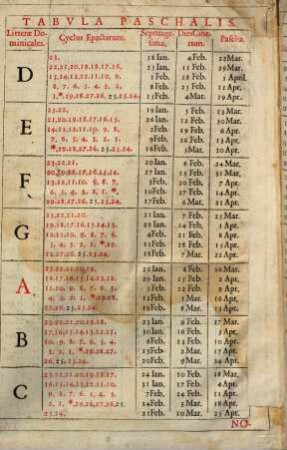 TABVLA PASCHALIS.
Litteræ Dominicales. Cyclus Epactarum. Septuagesima. Dies Cinerum. Pascha.
D
23. 18 Ian. 4 Feb. 22 Mar.
22.21.20.19.18.17.16. 25 Ian. 11 Feb. 29 Mar.
15.14.13.12.11.10.9. 1 Feb. 18 Feb. 5 April.
8. 7. 6. 5. 4. 3. 2. 8 Feb. 25 Feb. 12 Apr.
1.*.29.28.27.26.25.25.24. 15 Feb. 4 Mar. 19 Apr.
E
23.22. 19 Ian. 5 Feb. 23 Mar.
21.20.19.18.17.16.15. 26 Ian. 12 Feb. 30 Mar.
14.13.12.11.10. 9. 8. 2 Feb. 19 Feb. 6 Apr.
7. 6. 5. 4. 3. 2. 1. 9 Feb. 26 Feb. 13 Apr.
*.29.28.27.26.25.24. 16 Feb. 5 Mar. 20 Apr.
F
23.22.21. 20 Ian. 6 Feb. 24 Mar.
27 Ian. 13 Feb. 31 Mar.
13.12.11.10. 9. 8. 7. 3 Feb. 20 Feb. 7 Apr.
6. 5. 4. 3. 2. 1. *. 10 Feb. 27 Feb. 14 Apr.
29.28.27.26.25.25.24. 17 Feb. 6 Mar. 21 Apr.
G
23.22.21.20. 21 Ian. 7 Feb. 25 Mar.
19.18.17.16.15.14.13. 28 Ian. 14 Feb. 1 Apr.
12.11.10. 9. 8. 7. 6. 4 Feb. 21 Feb. 8 Apr.
5. 4. 3. 2. 1. *.29. 11 Feb. 28 Feb. 15 Apr.
28.27.26.25.25.24. 18 Feb. 7 Mar. 22 Apr.
A
23.22.21.20.19. 22 Ian. 8 Feb. 26 Mar.
18.17.16.15.14.13.12. 29 Ian. 15 Feb. 2 Apr.
11.10. 9. 8. 7. 6. 5. 5 Feb. 22 Feb. 9 Apr.
4. 3. 2. 1. *.29.28. 12 Feb. 1 Mar. 16 Apr.
27.26.25.25.24. 19 Feb. 8 Mar. 23 Apr.
B
23.22.21.20.19.18. 23 Ian. 9 Feb. 27 Mar.
17.16.15.14.13.12.11. 30 Ian. 16 Feb. 3 Apr.
10. 9. 8. 7. 6. 5. 4. 6 Feb. 23 Feb. 10 Apr.
3. 2. 1. *.29.28.27. 13 Feb. 2 Mar. 17 Apr.
26.25.25.24. 20 Feb. 9 Mar. 24 Apr.
C
23.22.21.20.19.18.17. 24 Ian. 10 Feb. 28 Mar.
16.15.14.13.12.11.10. 31 Ian. 17 Feb. 4 Apr.
9. 8. 7. 6. 5. 4. 3. 7 Feb. 24 Feb. 11 Apr.
2. 1. *.29.28.27.26.25. 14 Feb. 3 Mar. 18 Apr.
25.24. 21 Feb. 10 Mar. 25 Apr.
NO-